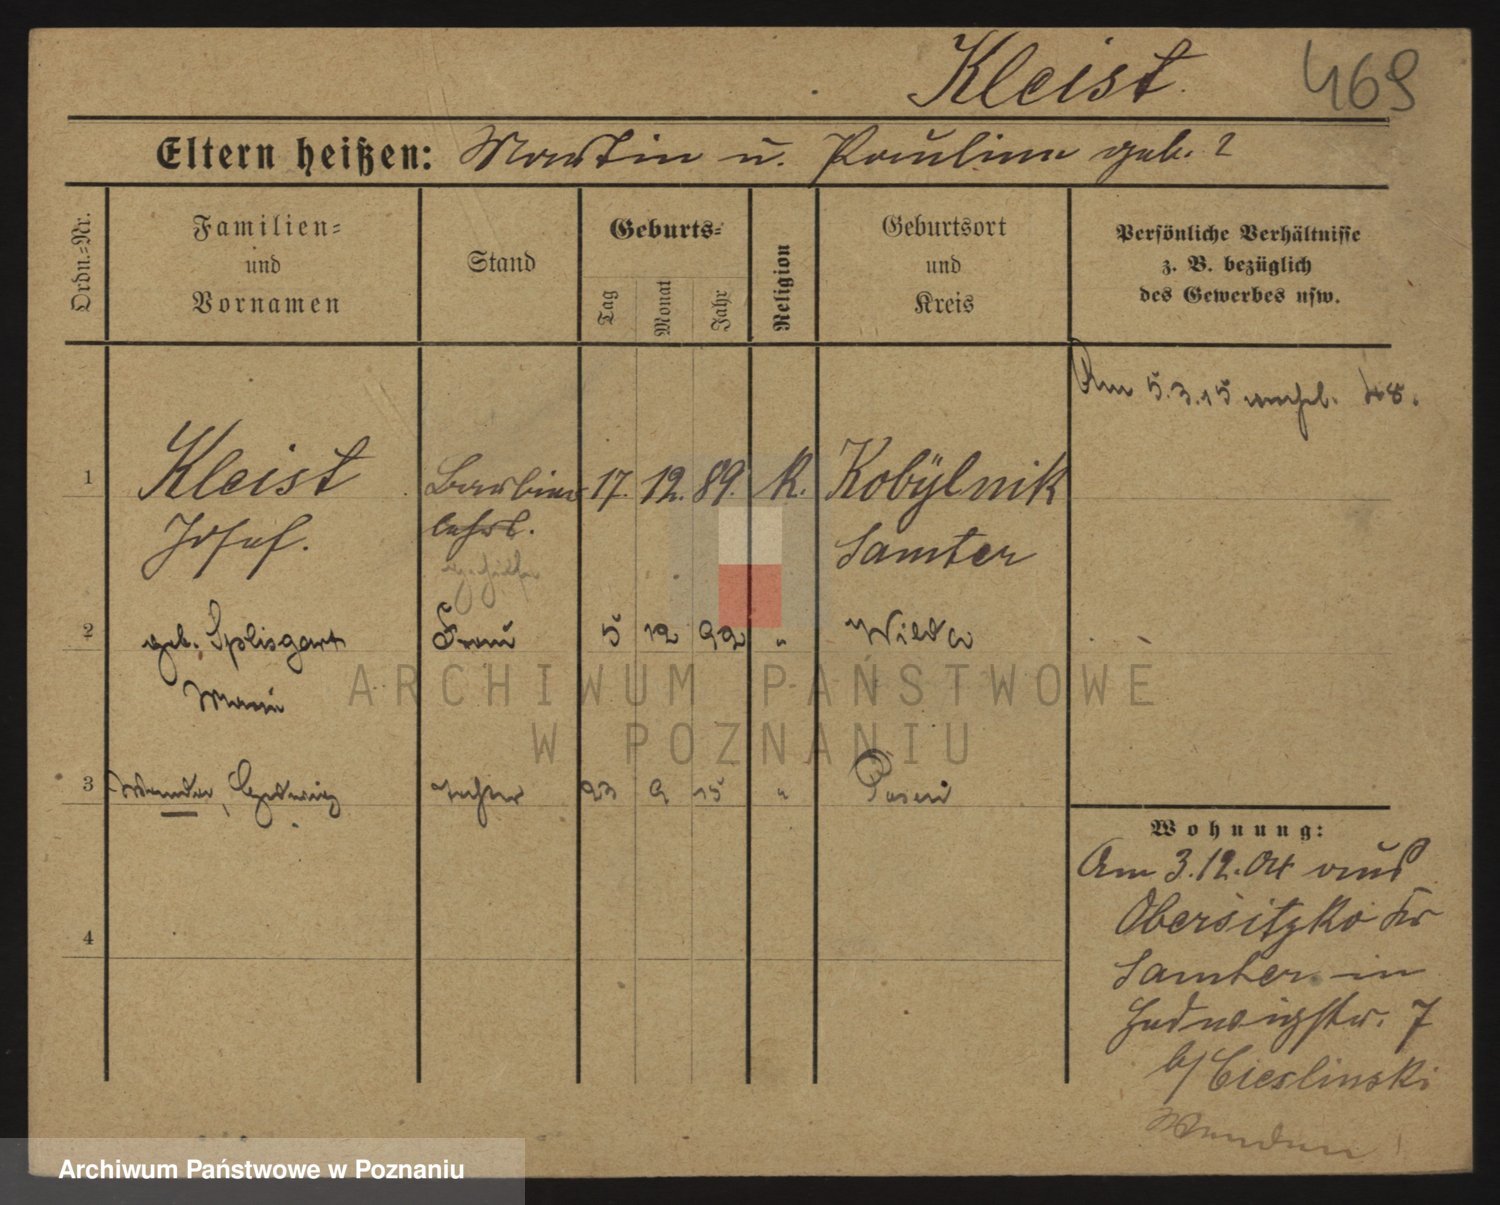 Kleist.
469
Eltern heißen: Martin u. Pauline geb. ?
Ordn.-Nr.
Familien- und Vornamen
Stand
Geburts-
Tag
Monat
Jahr
Religion
Geburtsort und Kreis
Persönliche Verhältnisse
z. B. bezüglich
des Gewerbes usw.
Am 5.3.15 verhel.
1 Kleist Barbier 17. 12. 89. K. Kobylnik
Josef. lehrl. Samter
gehilfe
2 geb. Splisgart Frau 5 12 92 " Wilda
Marie
3 Wanda, Hedwig Tochter 23 9 15 " Posen
4
Wohnung:
Am 3.12.04 aus
Obersitzko Kr
Samter in
Hedwigstr. 7
b/ Cieslinski
Wenden!
ARCHIWUM PAŃSTWOWE
W POZNANIU
Archiwum Państwowe w Poznaniu